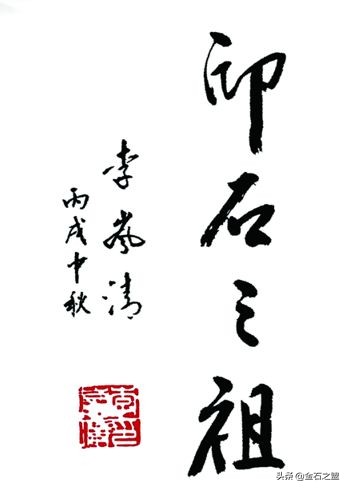 印石之祖
李岚清
丙戌中秋
头条 @金石之盟